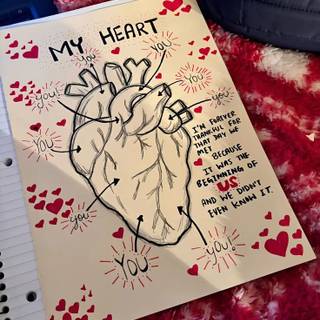 MY HEART
You
You
You!
You
You
You
You
You
You!
I'M FOREVER
THANKFUL FOR
THAT DAY WE
MET BECAUSE
IT WAS THE
BEGINNING OF
US
AND WE DIDN'T
EVEN KNOW IT.